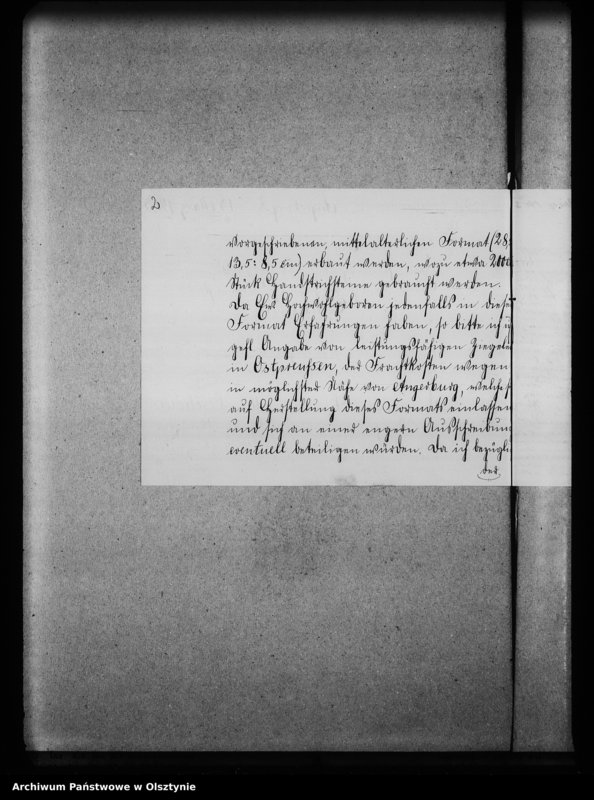 2
vorgeschriebenen, mittelalterlichen Format (28:
13,5: 8,5 cm) erbaut werden, wozu etwa
Stück Handstrichsteine gebraucht werden.
Da Ew. Hochwohlgeboren jedenfalls in diese
Format Erfahrungen haben, so bitte ich
gefl. Angabe von leistungsfähigen Ziegele
in Ostpreußen, der Frachtkosten wegen
in möglichster Nähe von Angerburg, welche
auf Herstellung dieses Formats einlassen
und sich an einer engern Ausschreibun
eventuell beteiligen würden. Da ich bezügli
der
Archiwum Państwowe w Olsztynie